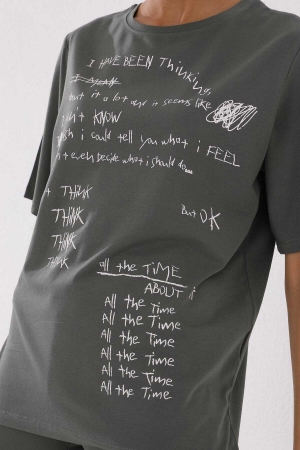 I HAVE BEEN Thinking
I MEAN
out it a lot and it seems like
n't KNOW
sh i could tell you what i FEEL
't even decide what i should do...
THINK
THINK
THINK
THINK
But OK
all the TiME
ABOUT it
All the Time
All the Time
All the Time
All the Time
All the Time
All the Time